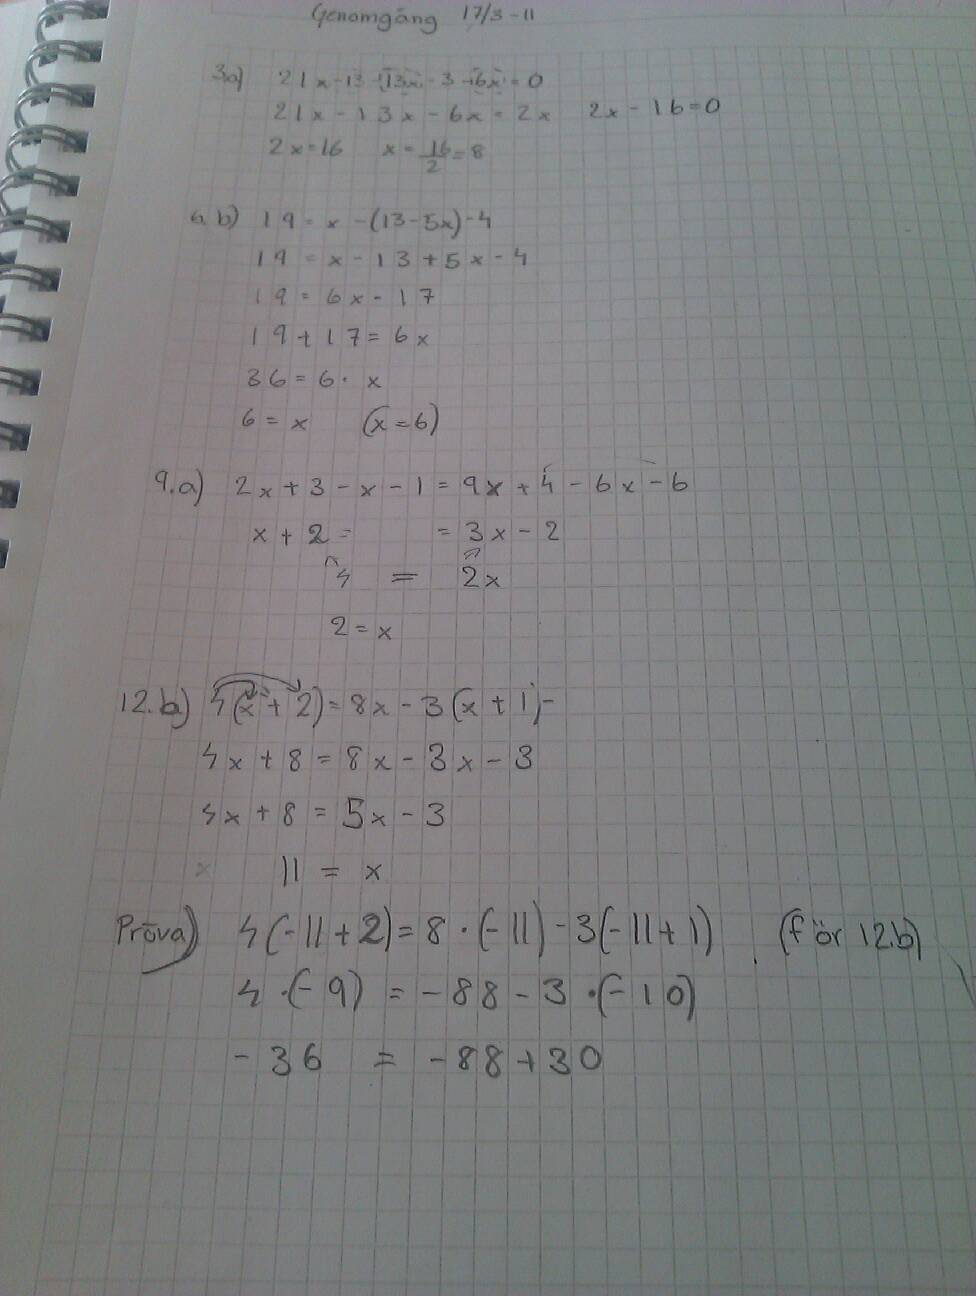 Genomgång 17/3-11
3a) 21x-13-13x-3-6x=0
21x-13x-6x=2x 2x-16=0
2x=16 x=16/2=8
6.b) 19=x-(13-5x)-4
19=x-13+5x-4
19=6x-17
19+17=6x
36=6·x
6=x (x=6)
9.a) 2x+3-x-1=9x+4-6x-6
x+2= =3x-2
4 = 2x
2=x
12.b) 4(x+2)=8x-3(x+1)-
4x+8=8x-3x-3
4x+8=5x-3
11=x
Pröva) 4(-11+2)=8·(-11)-3(-11+1) (för 12.b)
4·(-9)=-88-3·(-10)
-36 = -88+30